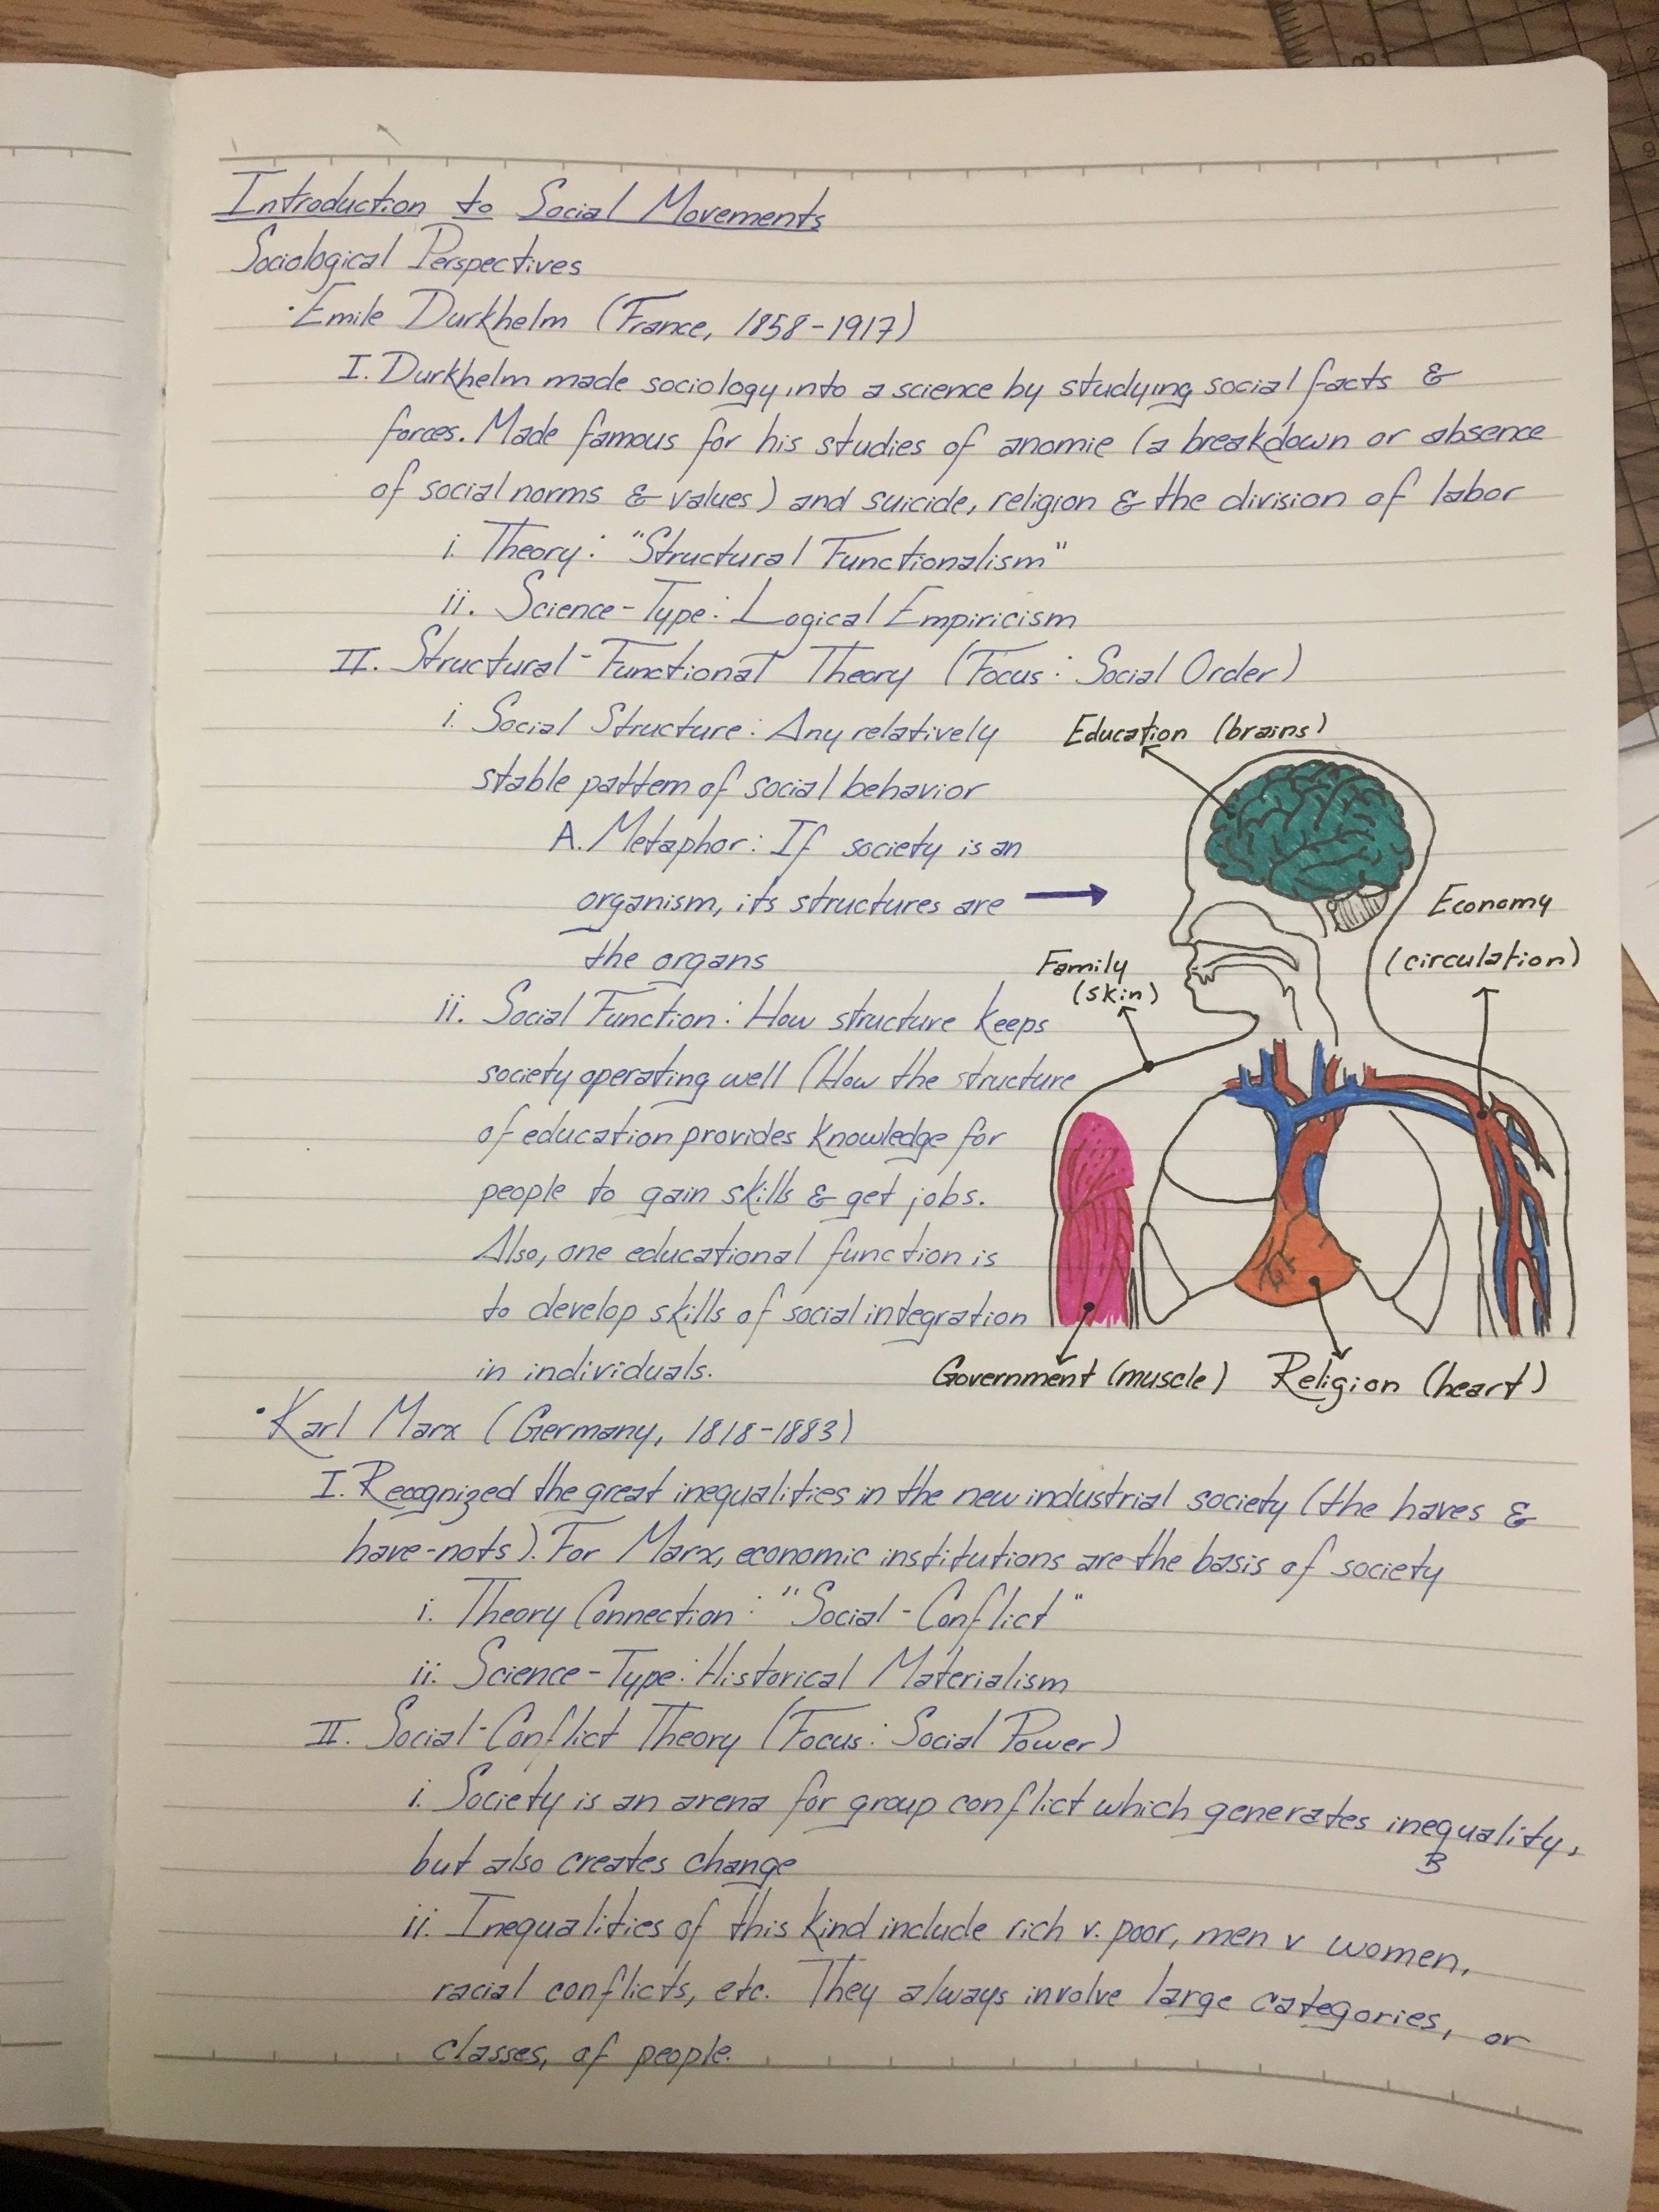 Introduction to Social Movements
Sociological Perspectives
·Emile Durkhelm (France, 1858-1917)
I. Durkhelm made sociology into a science by studying social facts &
forces. Made famous for his studies of anomie (a breakdown or absence
of social norms & values) and suicide, religion & the division of labor
i. Theory: "Structural Functionalism"
ii. Science-Type: Logical Empiricism
II. Structural-Functional Theory (Focus: Social Order)
i. Social Structure: Any relatively
stable pattem of social behavior
A. Metaphor: If society is an
organism, its structures are
the organs
ii. Social Function: How structure keeps
society operating well (How the structure
of education provides knowledge for
people to gain skills & get jobs.
Also, one educational function is
to develop skills of social integration
in individuals.
Education (brains)
Economy
(circulation)
Family
(skin)
Government (muscle)
Religion (heart)
·Karl Marx (Germany, 1818-1883)
I. Recognized the great inequalities in the new industrial society (the haves &
have-nots). For Marx, economic institutions are the basis of society
i. Theory Connection: "Social-Conflict"
ii. Science-Type: Historical Materialism
II. Social-Conflict Theory (Focus: Social Power)
i. Society is an arena for group conflict which generates inequality,
B
but also creates change
ii. Inequalities of this kind include rich v. poor, men v women,
racial conflicts, etc. They always involve large categories, or
classes, of people.